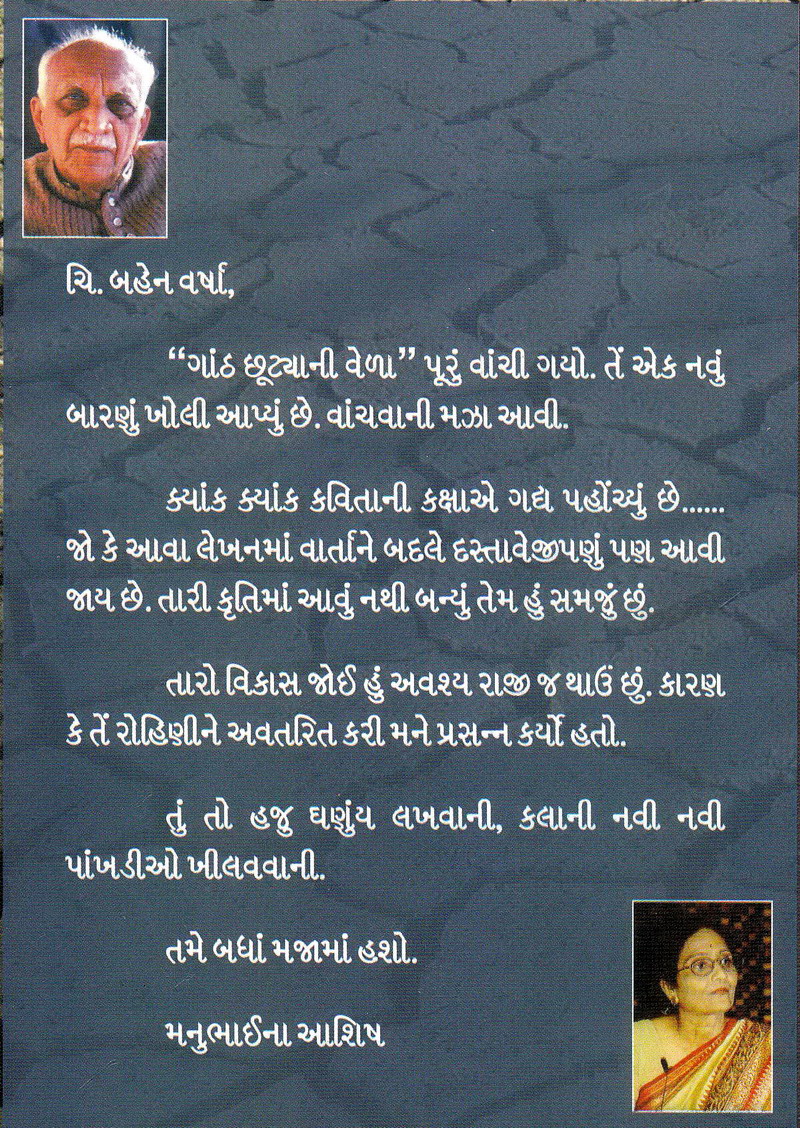 ચિ. બહેન વર્ષા,
“ગાંઠ છૂટ્યાની વેળા” પૂરું વાંચી ગયો. તેં એક નવું
બારણું ખોલી આપ્યું છે. વાંચવાની મઝા આવી.
ક્યાંક ક્યાંક કવિતાની કક્ષાએ ગદ્ય પહોંચ્યું છે......
જો કે આવા લેખનમાં વાર્તાને બદલે દસ્તાવેજીપણું પણ આવી
જાય છે. તારી કૃતિમાં આવું નથી બન્યું તેમ હું સમજું છું.
તારો વિકાસ જોઈ હું અવશ્ય રાજી જ થાઉં છું. કારણ
કે તેં રોહિણીને અવતરિત કરી મને પ્રસન્ન કર્યો હતો.
તું તો હજુ ઘણુંય લખવાની, કલાની નવી નવી
પાંખડીઓ ખીલવવાની.
તમે બધાં મજામાં હશો.
મનુભાઈના આશિષ